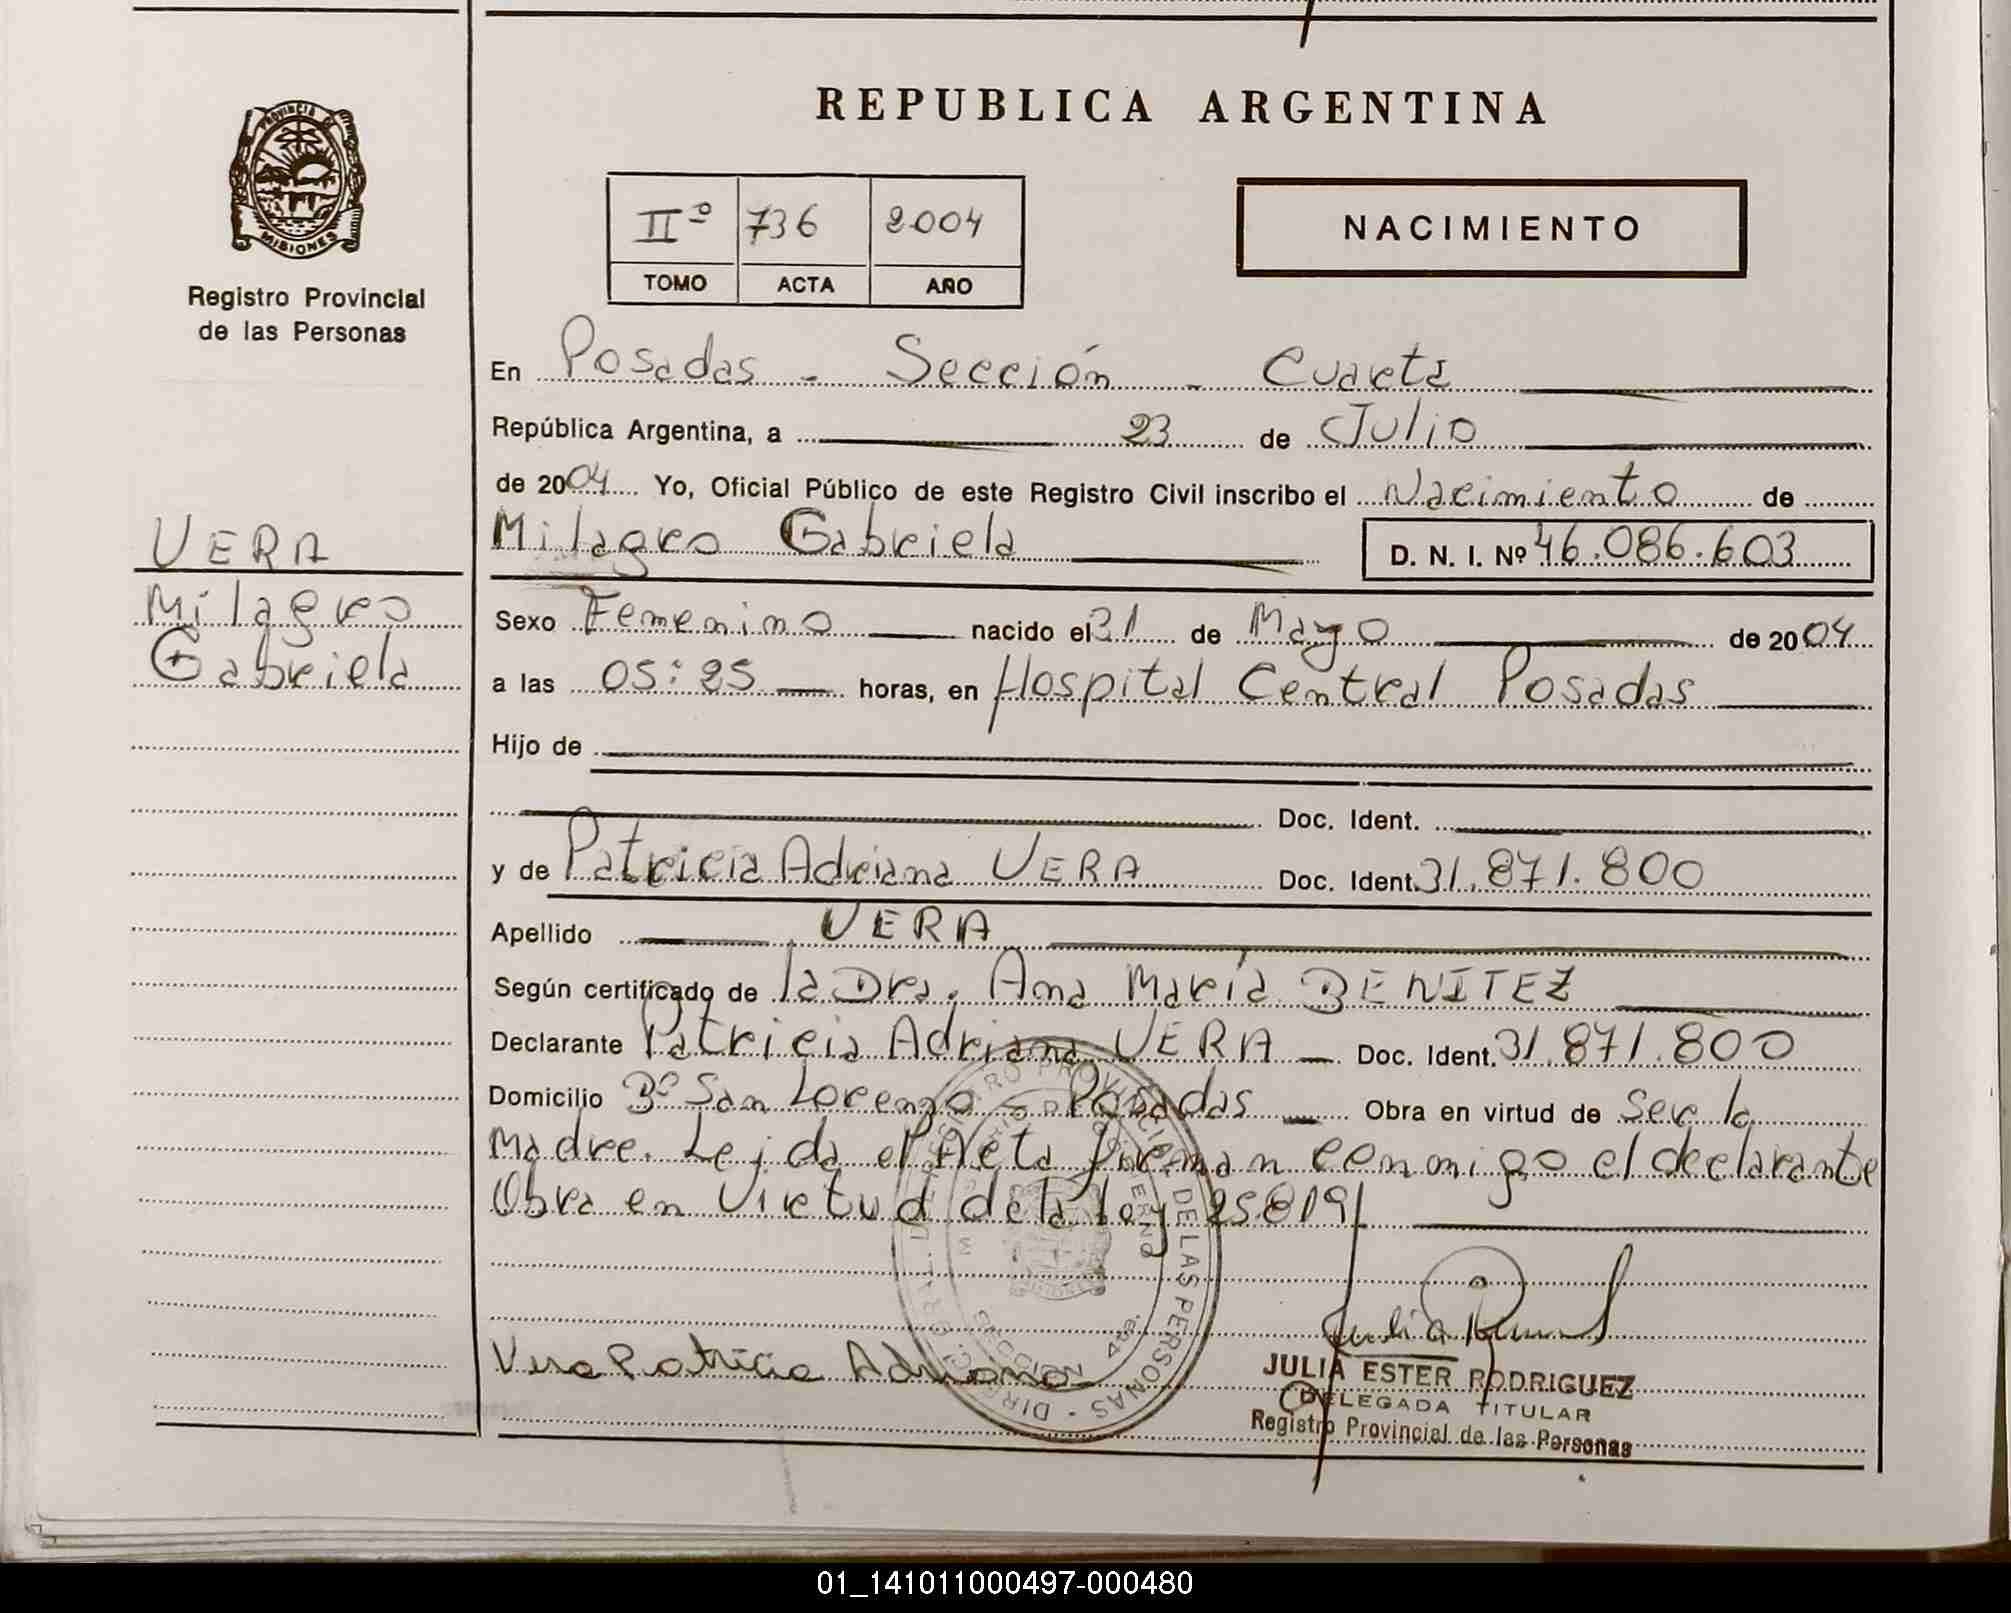 REPUBLICA ARGENTINA
PROVINCIA DE
MISIONES
Registro Provincial
de las Personas
IIº 736 2004
TOMO ACTA AÑO
NACIMIENTO
En Posadas - Sección - Cuarta
República Argentina, a 23 de Julio
de 2004 Yo, Oficial Público de este Registro Civil inscribo el Nacimiento de
VERA
Milagro
Gabriela
Milagro Gabriela D. N. I. Nº 46.086.603
Sexo Femenino nacido el 31 de Mayo de 2004
a las 05:25 horas, en Hospital Central Posadas
Hijo de
Doc. Ident.
y de Patricia Adriana VERA Doc. Ident. 31.871.800
Apellido VERA
Según certificado de la Dra. Ana María BENITEZ
Declarante Patricia Adriana VERA Doc. Ident. 31.871.800
Domicilio Bº San Lorenzo Posadas Obra en virtud de Ser la
Madre. Leida el Acta firman conmigo el declarante
Obra en Virtud de la ley 25819
Vera Patricia Adriana
JULIA ESTER RODRIGUEZ
DELEGADA TITULAR
Registro Provincial de las Personas
REGISTRO PROVINCIAL DE LAS PERSONAS
SECCION 4ta.
01_141011000497-000480